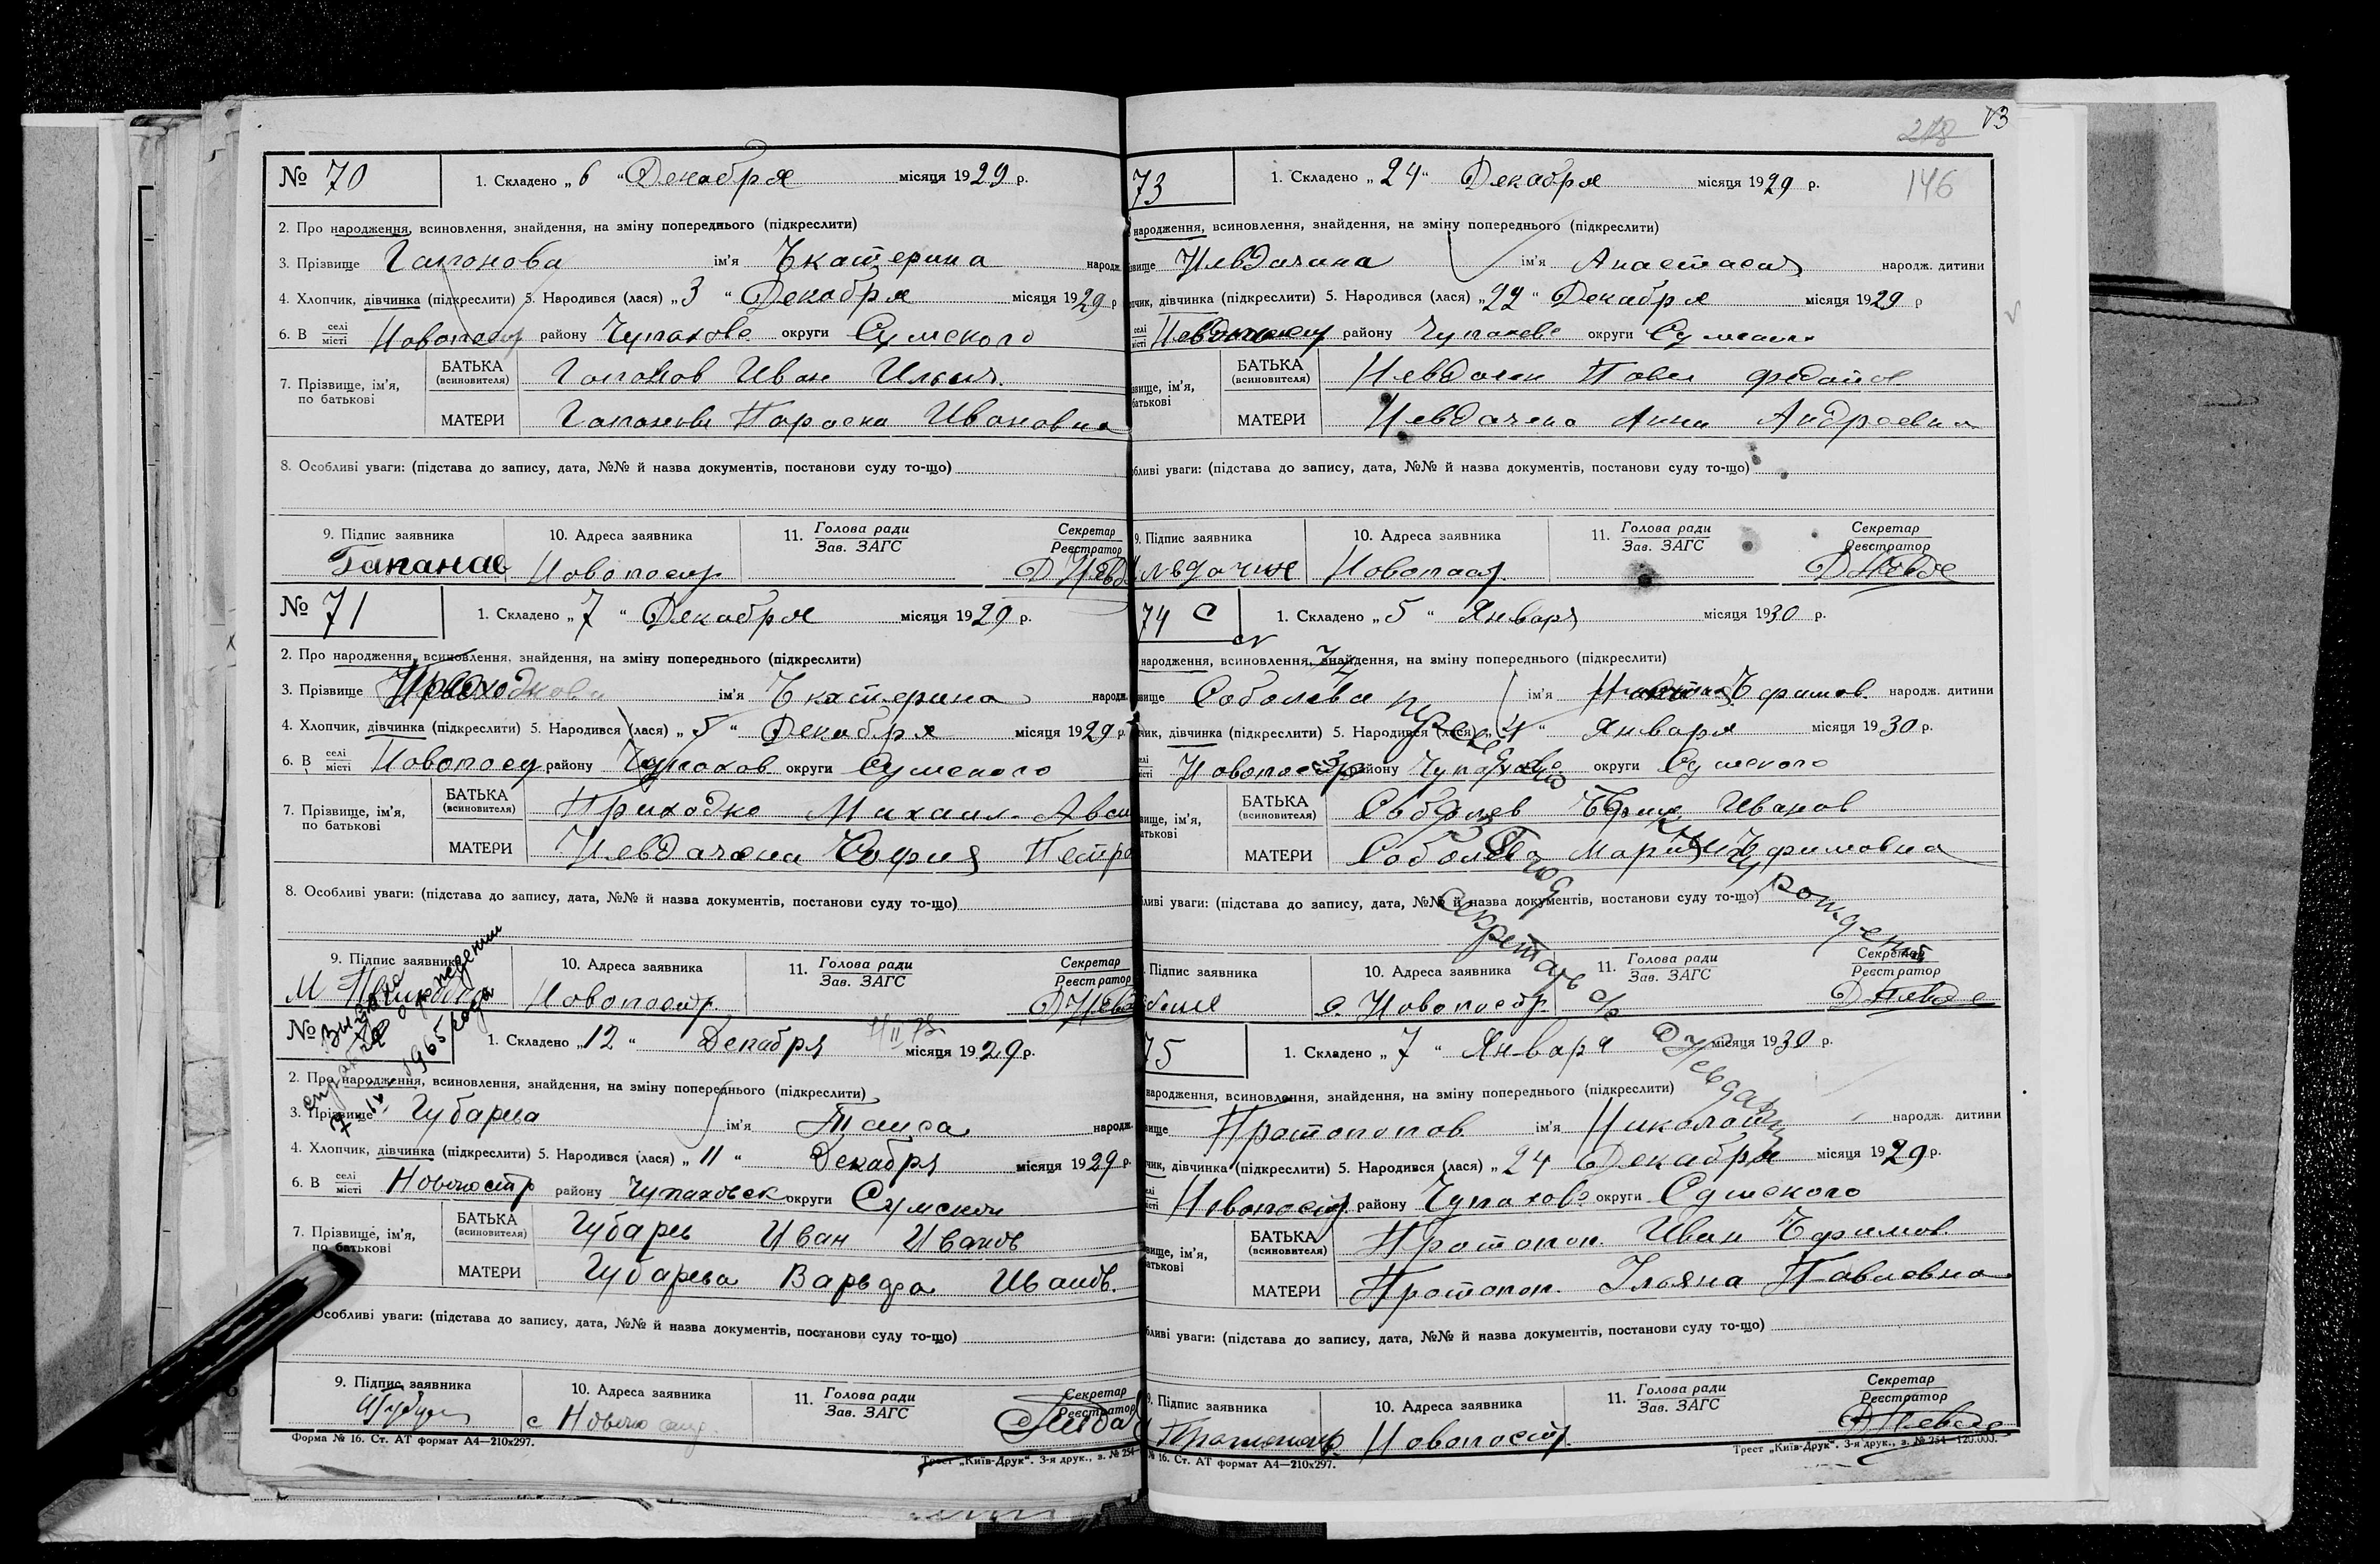 № 70
1. Складено „ 6 “ Декабря місяця 1929 р.
2. Про народження, всиновлення, знайдення, на зміну попереднього (підкреслити)
3. Прізвище Гапонова ім'я Екатерина народж.
4. Хлопчик, дівчинка (підкреслити) 5. Народився (лася) „ 3 “ Декабря місяця 1929 р
6. В селі місті Новопостр району Чупахове округи Сумского
7. Прізвище, ім'я, по батькові
БАТЬКА (всиновителя) Гапонов Иван Ильич
МАТЕРИ Гапонова Параска Ивановна
8. Особливі уваги: (підстава до запису, дата, №№ й назва документів, постанови суду то-що)
9. Підпис заявника 10. Адреса заявника 11. Голова ради Зав. ЗАГС Секретар Реєстратор
Гапанав Новопостр
№ 71
1. Складено „ 7 “ Декабря місяця 1929 р.
2. Про народження, всиновлення, знайдення, на зміну попереднього (підкреслити)
3. Прізвище ім'я Екатерина народж.
4. Хлопчик, дівчинка (підкреслити) 5. Народився (лася) „ 5 “ Декабря місяця 1929 р.
6. В селі місті Новопостр району Чупахов округи Сумского
7. Прізвище, ім'я, по батькові
БАТЬКА (всиновителя) Приходко Михаил
МАТЕРИ Невдачена София Петро
8. Особливі уваги: (підстава до запису, дата, №№ й назва документів, постанови суду то-що)
9. Підпис заявника 10. Адреса заявника 11. Голова ради Зав. ЗАГС Секретар Реєстратор
М Новопостр.
Выдана справка о рождении
1965 года
№ 72
1. Складено „ 12 “ Декабря місяця 1929 р.
2. Про народження, всиновлення, знайдення, на зміну попереднього (підкреслити)
3. Прізвище Губарева ім'я Таиса народж.
4. Хлопчик, дівчинка (підкреслити) 5. Народився (лася) „ 11 “ Декабря місяця 1929 р.
6. В селі місті Новопостр району Чупаховск округи Сумский
7. Прізвище, ім'я, по батькові
БАТЬКА (всиновителя) Губарев Иван Иванов
МАТЕРИ Губарева Варвара Иванов.
Особливі уваги: (підстава до запису, дата, №№ й назва документів, постанови суду то-що)
9. Підпис заявника 10. Адреса заявника 11. Голова ради Зав. ЗАГС Секретар Реєстратор
с Новопостр.
Форма № 16. Ст. АТ формат А4—210х297.
Трест „Київ-Друк“. 3-я друк., з. № 254
73
146
73
1. Складено „ 24 “ Декабря місяця 1929 р.
народження, всиновлення, знайдення, на зміну попереднього (підкреслити)
Невдачина ім'я Анастасия народж. дитини
дівчинка (підкреслити) 5. Народився (лася) „ 22 “ Декабря місяця 1929 р
району Чупахове округи Сумского
БАТЬКА (всиновителя) Невдачен Павел
МАТЕРИ Невдачена Анна Андреевна
уваги: (підстава до запису, дата, №№ й назва документів, постанови суду то-що)
9. Підпис заявника 10. Адреса заявника 11. Голова ради Зав. ЗАГС Секретар Реєстратор
Новопостр.
74
1. Складено „ 5 “ Января місяця 1930 р.
народження, всиновлення, знайдення, на зміну попереднього (підкреслити)
Соболева ім'я народж. дитини
дівчинка (підкреслити) 5. Народився (лася) „ 4 “ Января місяця 1930 р.
Новопостр району Чупахове округи Сумского
БАТЬКА (всиновителя) Соболев Ефим Иванов
МАТЕРИ Соболева Мария Ефимовна
уваги: (підстава до запису, дата, №№ й назва документів, постанови суду то-що)
Підпис заявника 10. Адреса заявника 11. Голова ради Зав. ЗАГС Секретар Реєстратор
с. Новопостр.
Секретарь с/с
75
1. Складено „ 7 “ Января місяця 1930 р.
народження, всиновлення, знайдення, на зміну попереднього (підкреслити)
Протопопов ім'я Николай народж. дитини
дівчинка (підкреслити) 5. Народився (лася) „ 24 Декабря місяця 1929 р.
Новопостр. району Чупахов. округи Сумского
БАТЬКА (всиновителя) Протопоп. Иван Ефимов.
МАТЕРИ Протопоп. Ульяна Павловна
уваги: (підстава до запису, дата, №№ й назва документів, постанови суду то-що)
9. Підпис заявника 10. Адреса заявника 11. Голова ради Зав. ЗАГС Секретар Реєстратор
Новопостр.
№ 16. Ст. АТ формат А4—210х297.
Трест „Київ-Друк“. 3-я друк., з. № 254—120.000.